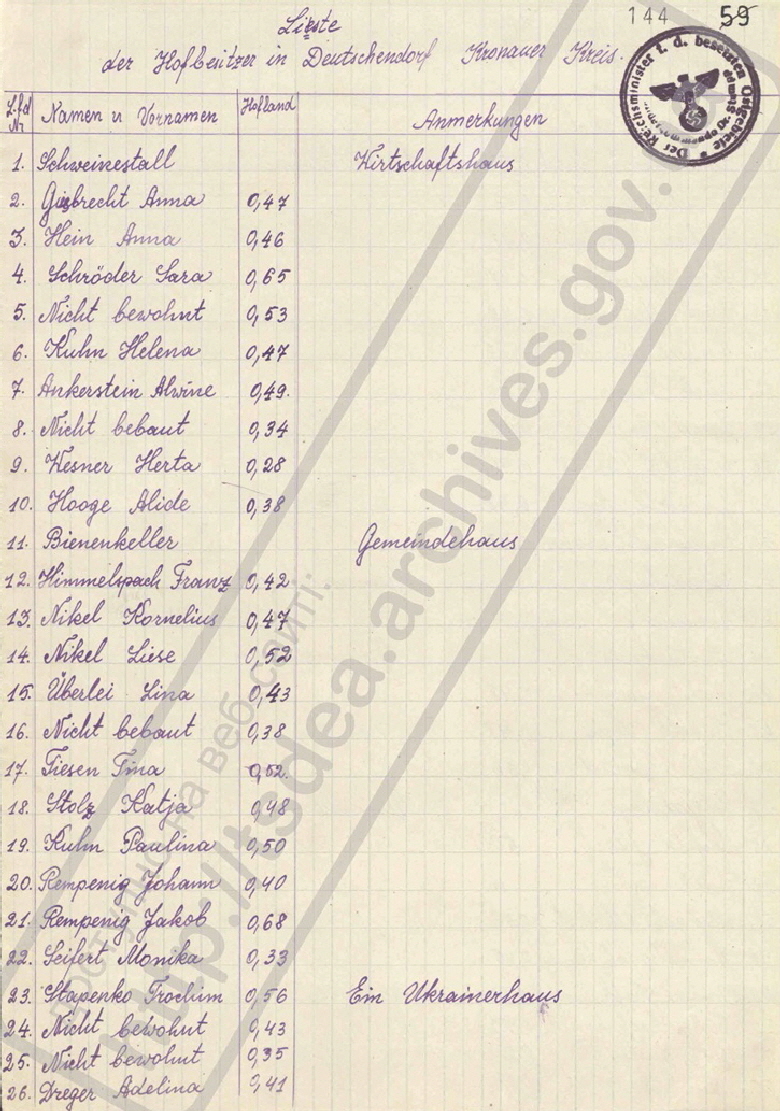 144 59
Lieste
der Hofbesitzer in Deutschendorf Kronauer Kreis.
Der Reichsminister f. d. besetzten Ostgebiete
L-fd Nr Namen u Vornamen Hofland Anmerkungen
1. Schweinestall Wirtschaftshaus
2. Giesbrecht Anna 0,47
3. Hein Anna 0,46
4. Schröder Sara 0,65
5. Nicht bewohnt 0,53
6. Kuhn Helena 0,47
7. Ankerstein Alwine 0,49.
8. Nicht bebaut 0,34
9. Wesner Herta 0,28
10. Hooge Alide 0,38
11. Bienenkeller Gemeindehaus
12. Himmelspach Franz 0,42
13. Nikel Kornelius 0,47
14. Nikel Liese 0,52
15. Überlei Lina 0,43
16. Nicht bebaut 0,38
17. Tiesen Tina 0,52.
18. Stolz Katja 0,48
19. Kuhn Paulina 0,50
20. Rempenig Johann 0,40
21. Rempenig Jakob 0,68
22. Seifert Monika 0,33
23. Stapenko Trochim 0,56 Ein Ukrainerhaus
24. Nicht bewohnt 0,43
25. Nicht bewohnt 0,35
26. Dreger Adelina 0,41
доступно на веб-сайті:
http://tsdea.archives.gov.